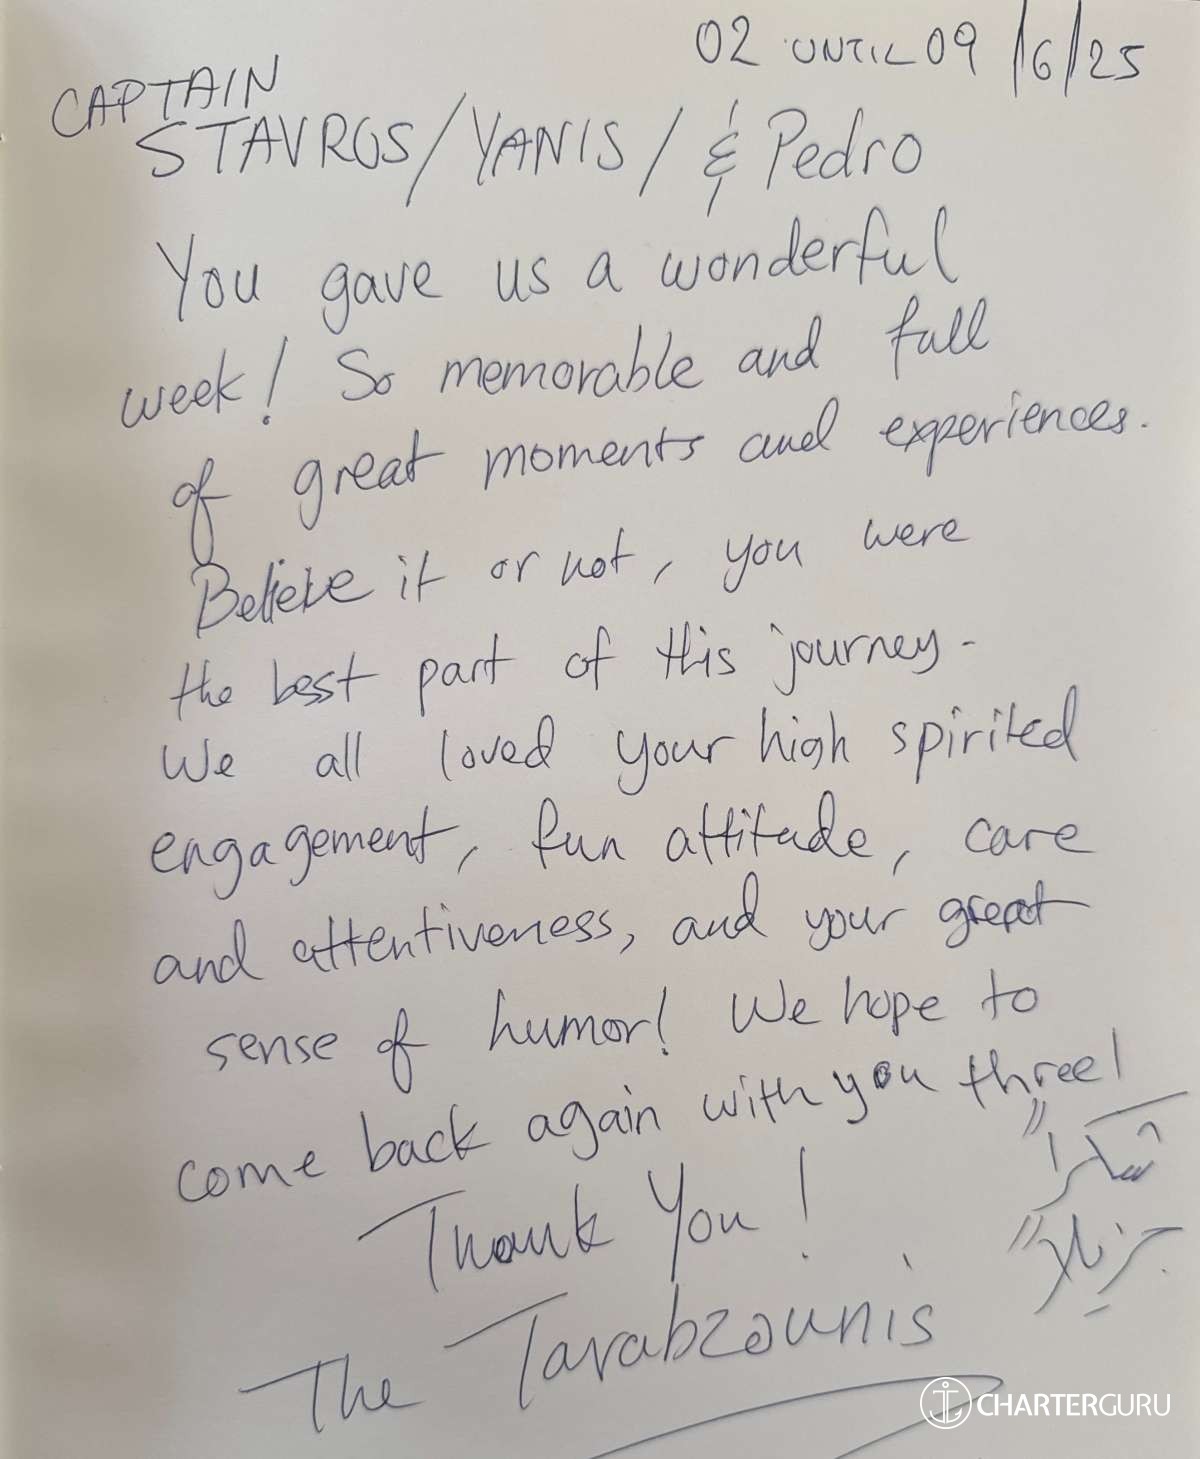 02 UNTIL 09/6/25
CAPTAIN
STAVROS/YANIS/& Pedro
You gave us a wonderful
week! So memorable and full
of great moments and experiences.
Believe it or not, you were
the best part of this journey.
We all loved your high spirited
engagement, fun attitude, care
and attentiveness, and your great
sense of humor! We hope to
come back again with you three!
شكراً
جزيلاً
Thank You!
The Tarabzounis
CHARTERGURU